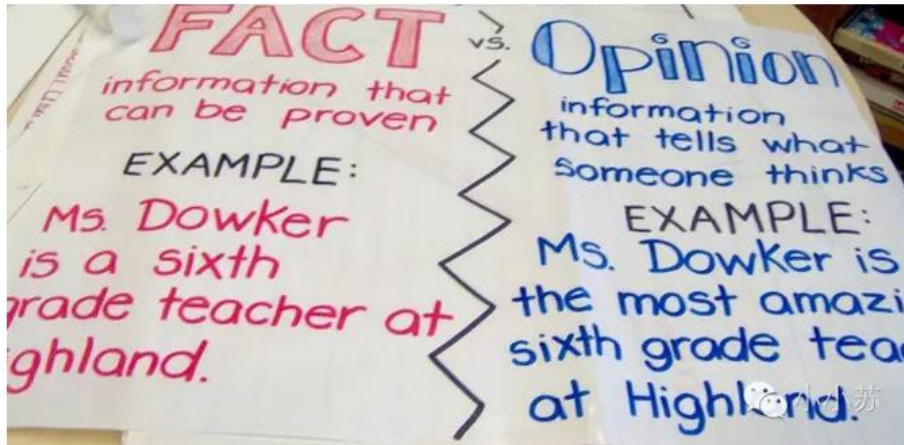 FACT
information that
can be proven
EXAMPLE:
Ms. Dowker
is a sixth
grade teacher at
ghland.
vs.
Opinion
information
that tells what
someone thinks
EXAMPLE:
Ms. Dowker is
the most amazi
sixth grade tea
at Highland.
小小苏